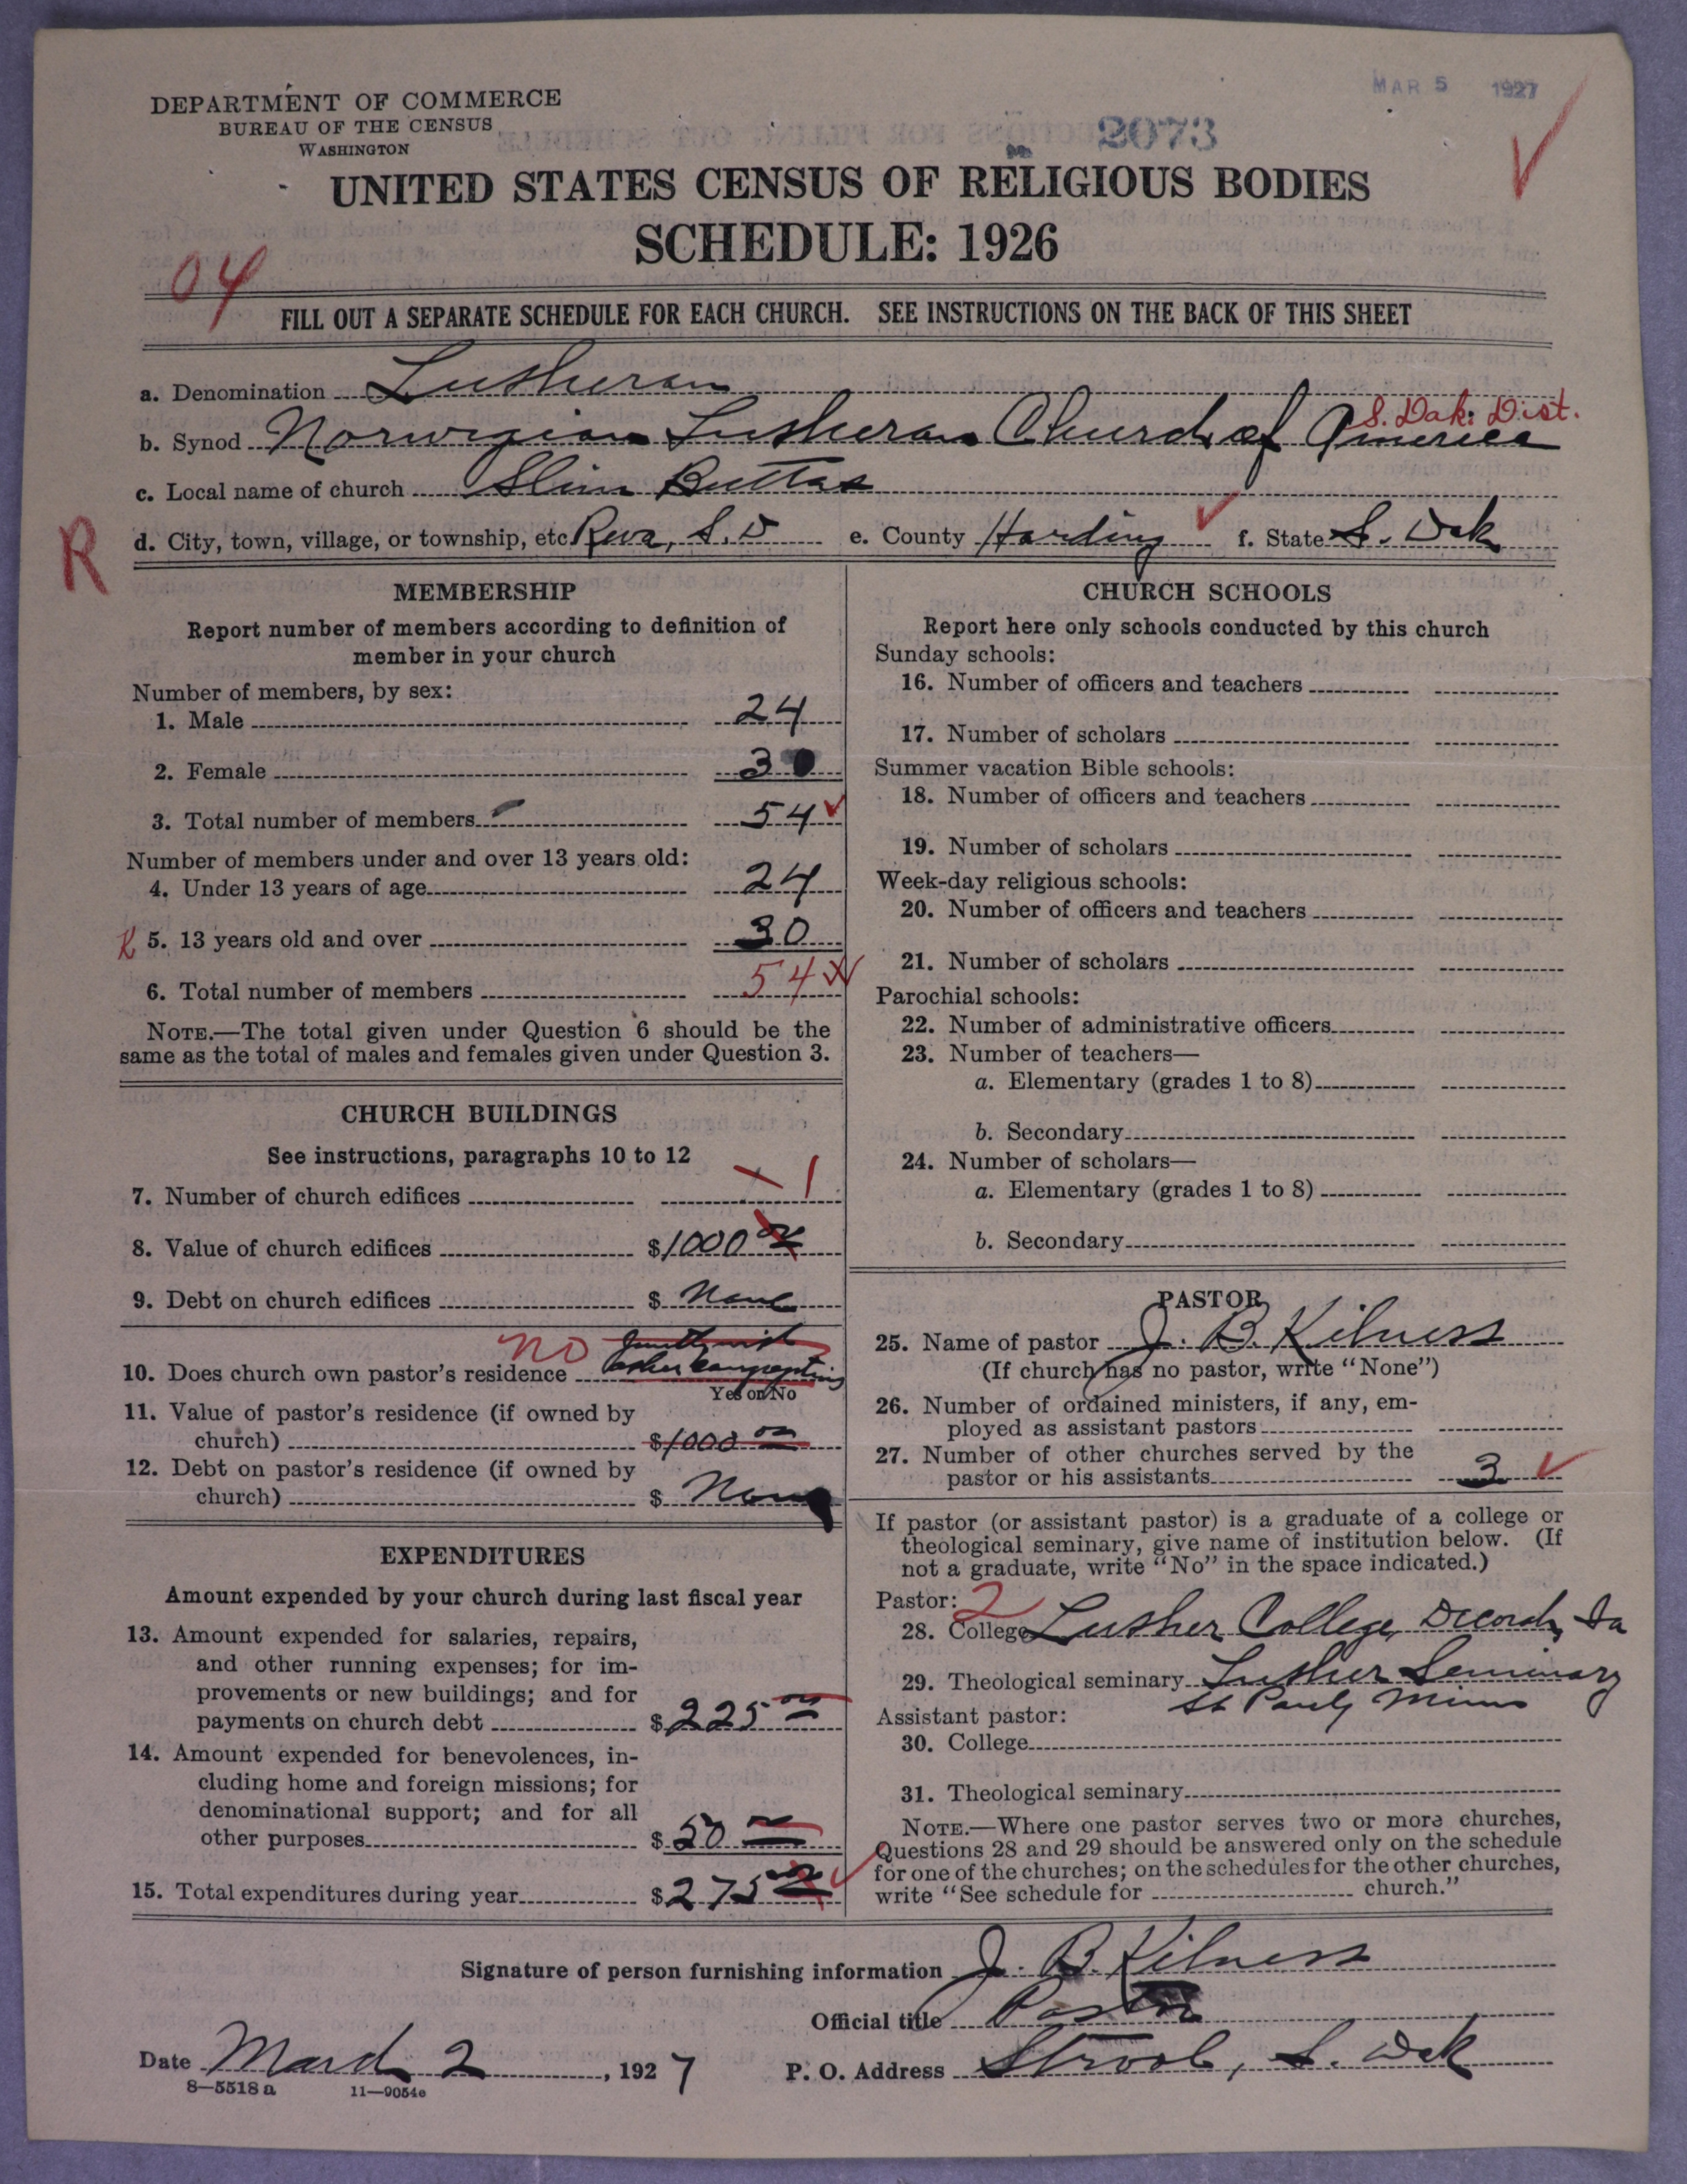 DEPARTMENT OF COMMERCE
BUREAU OF THE CENSUS
WASHINGTON
MAR 5 1927
2073
UNITED STATES CENSUS OF RELIGIOUS BODIES
SCHEDULE: 1926
04
FILL OUT A SEPARATE SCHEDULE FOR EACH CHURCH. SEE INSTRUCTIONS ON THE BACK OF THIS SHEET
a. Denomination Lutheran
S. Dak. Dist.
b. Synod Norwegian Lutheran Church of America
c. Local name of church Slim Buttes
R
d. City, town, village, or township, etc Reva, S. D e. County Harding f. State S. Dak
MEMBERSHIP
Report number of members according to definition of
member in your church
Number of members, by sex:
1. Male 24
2. Female 30
3. Total number of members 54
Number of members under and over 13 years old:
4. Under 13 years of age 24
R 5. 13 years old and over 30
6. Total number of members 54
NOTE.—The total given under Question 6 should be the
same as the total of males and females given under Question 3.
CHURCH BUILDINGS
See instructions, paragraphs 10 to 12
7. Number of church edifices 1
8. Value of church edifices $1000 00
9. Debt on church edifices $ None
no Jointly with
10. Does church own pastor's residence other congregations
Yes or No
11. Value of pastor's residence (if owned by
church) $1000 00
12. Debt on pastor's residence (if owned by
church) $ None
EXPENDITURES
Amount expended by your church during last fiscal year
13. Amount expended for salaries, repairs,
and other running expenses; for im-
provements or new buildings; and for
payments on church debt $225 00
14. Amount expended for benevolences, in-
cluding home and foreign missions; for
denominational support; and for all
other purposes $50 00
15. Total expenditures during year $275 00
CHURCH SCHOOLS
Report here only schools conducted by this church
Sunday schools:
16. Number of officers and teachers
17. Number of scholars
Summer vacation Bible schools:
18. Number of officers and teachers
19. Number of scholars
Week-day religious schools:
20. Number of officers and teachers
21. Number of scholars
Parochial schools:
22. Number of administrative officers
23. Number of teachers—
a. Elementary (grades 1 to 8)
b. Secondary
24. Number of scholars—
a. Elementary (grades 1 to 8)
b. Secondary
PASTOR
25. Name of pastor J. B. Kilness
(If church has no pastor, write "None")
26. Number of ordained ministers, if any, em-
ployed as assistant pastors
27. Number of other churches served by the
pastor or his assistants 3
If pastor (or assistant pastor) is a graduate of a college or
theological seminary, give name of institution below. (If
not a graduate, write "No" in the space indicated.)
Pastor: 2
28. College Luther College, Decorah, Ia
29. Theological seminary Luther Seminary
St Paul, Minn
Assistant pastor:
30. College
31. Theological seminary
NOTE.—Where one pastor serves two or more churches,
Questions 28 and 29 should be answered only on the schedule
for one of the churches; on the schedules for the other churches,
write "See schedule for church."
Signature of person furnishing information J. B. Kilness
Official title Pastor
Date March 2, 1927 P. O. Address Strool, S. Dak
8—5518 a 11—9054e